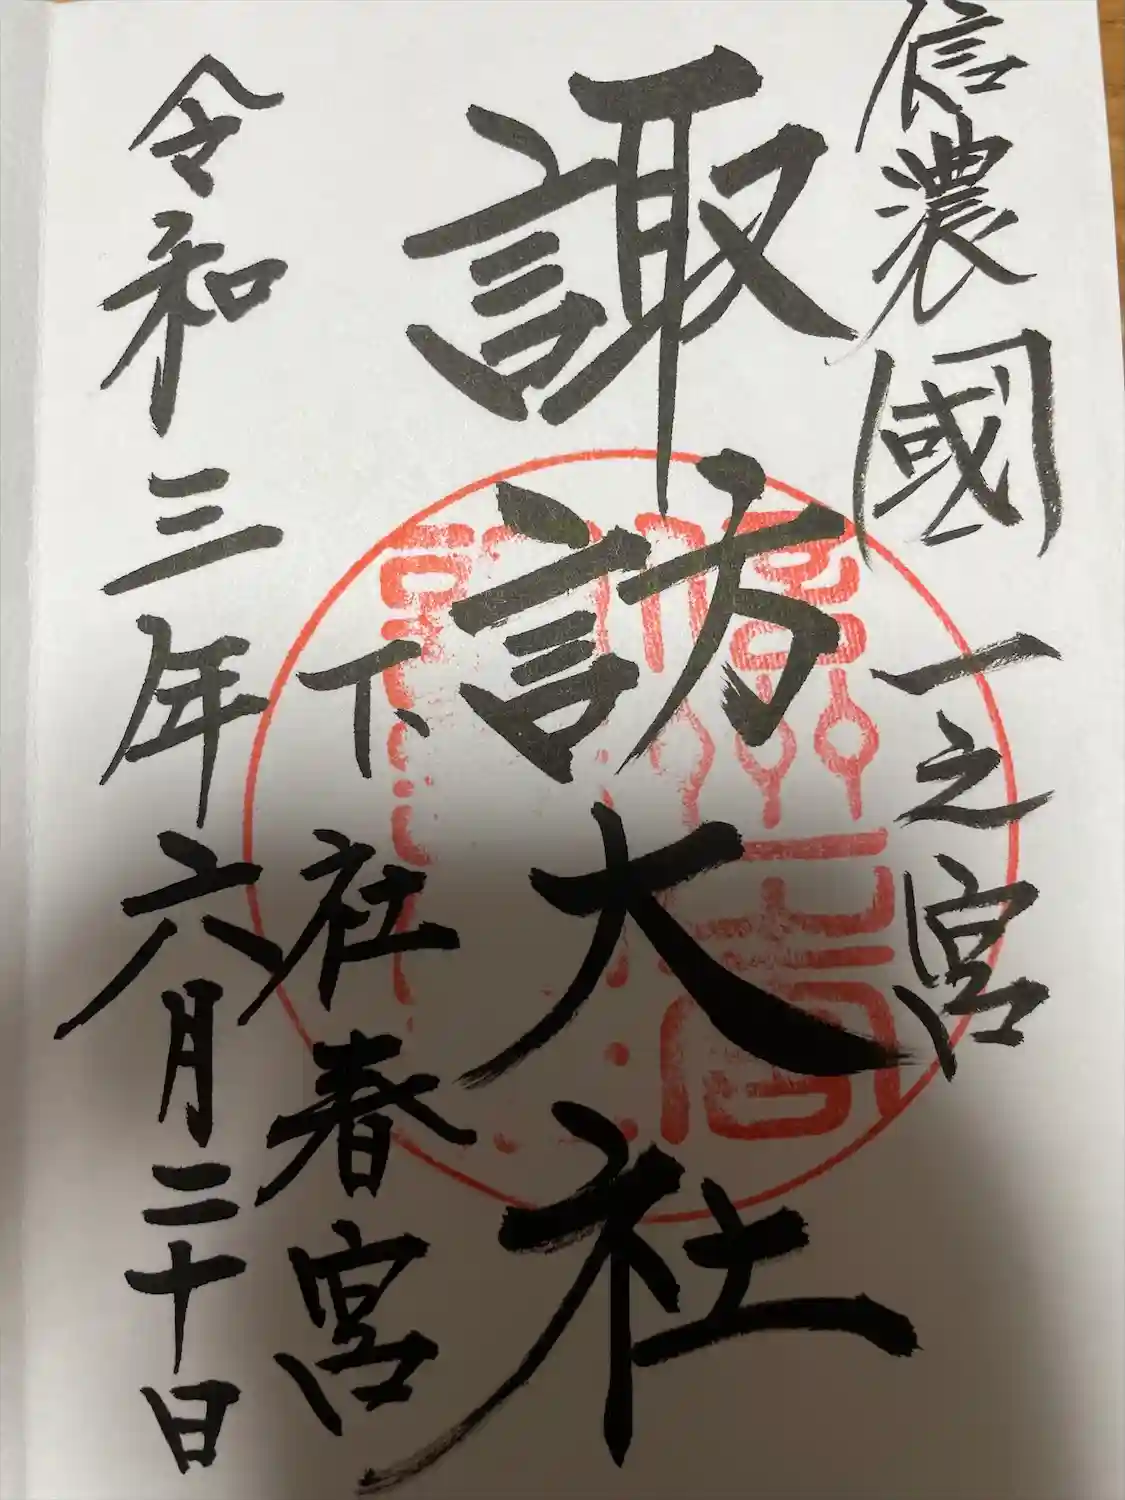 信濃國一之宮
諏訪大社
下社春宮
令和三年六月二十日